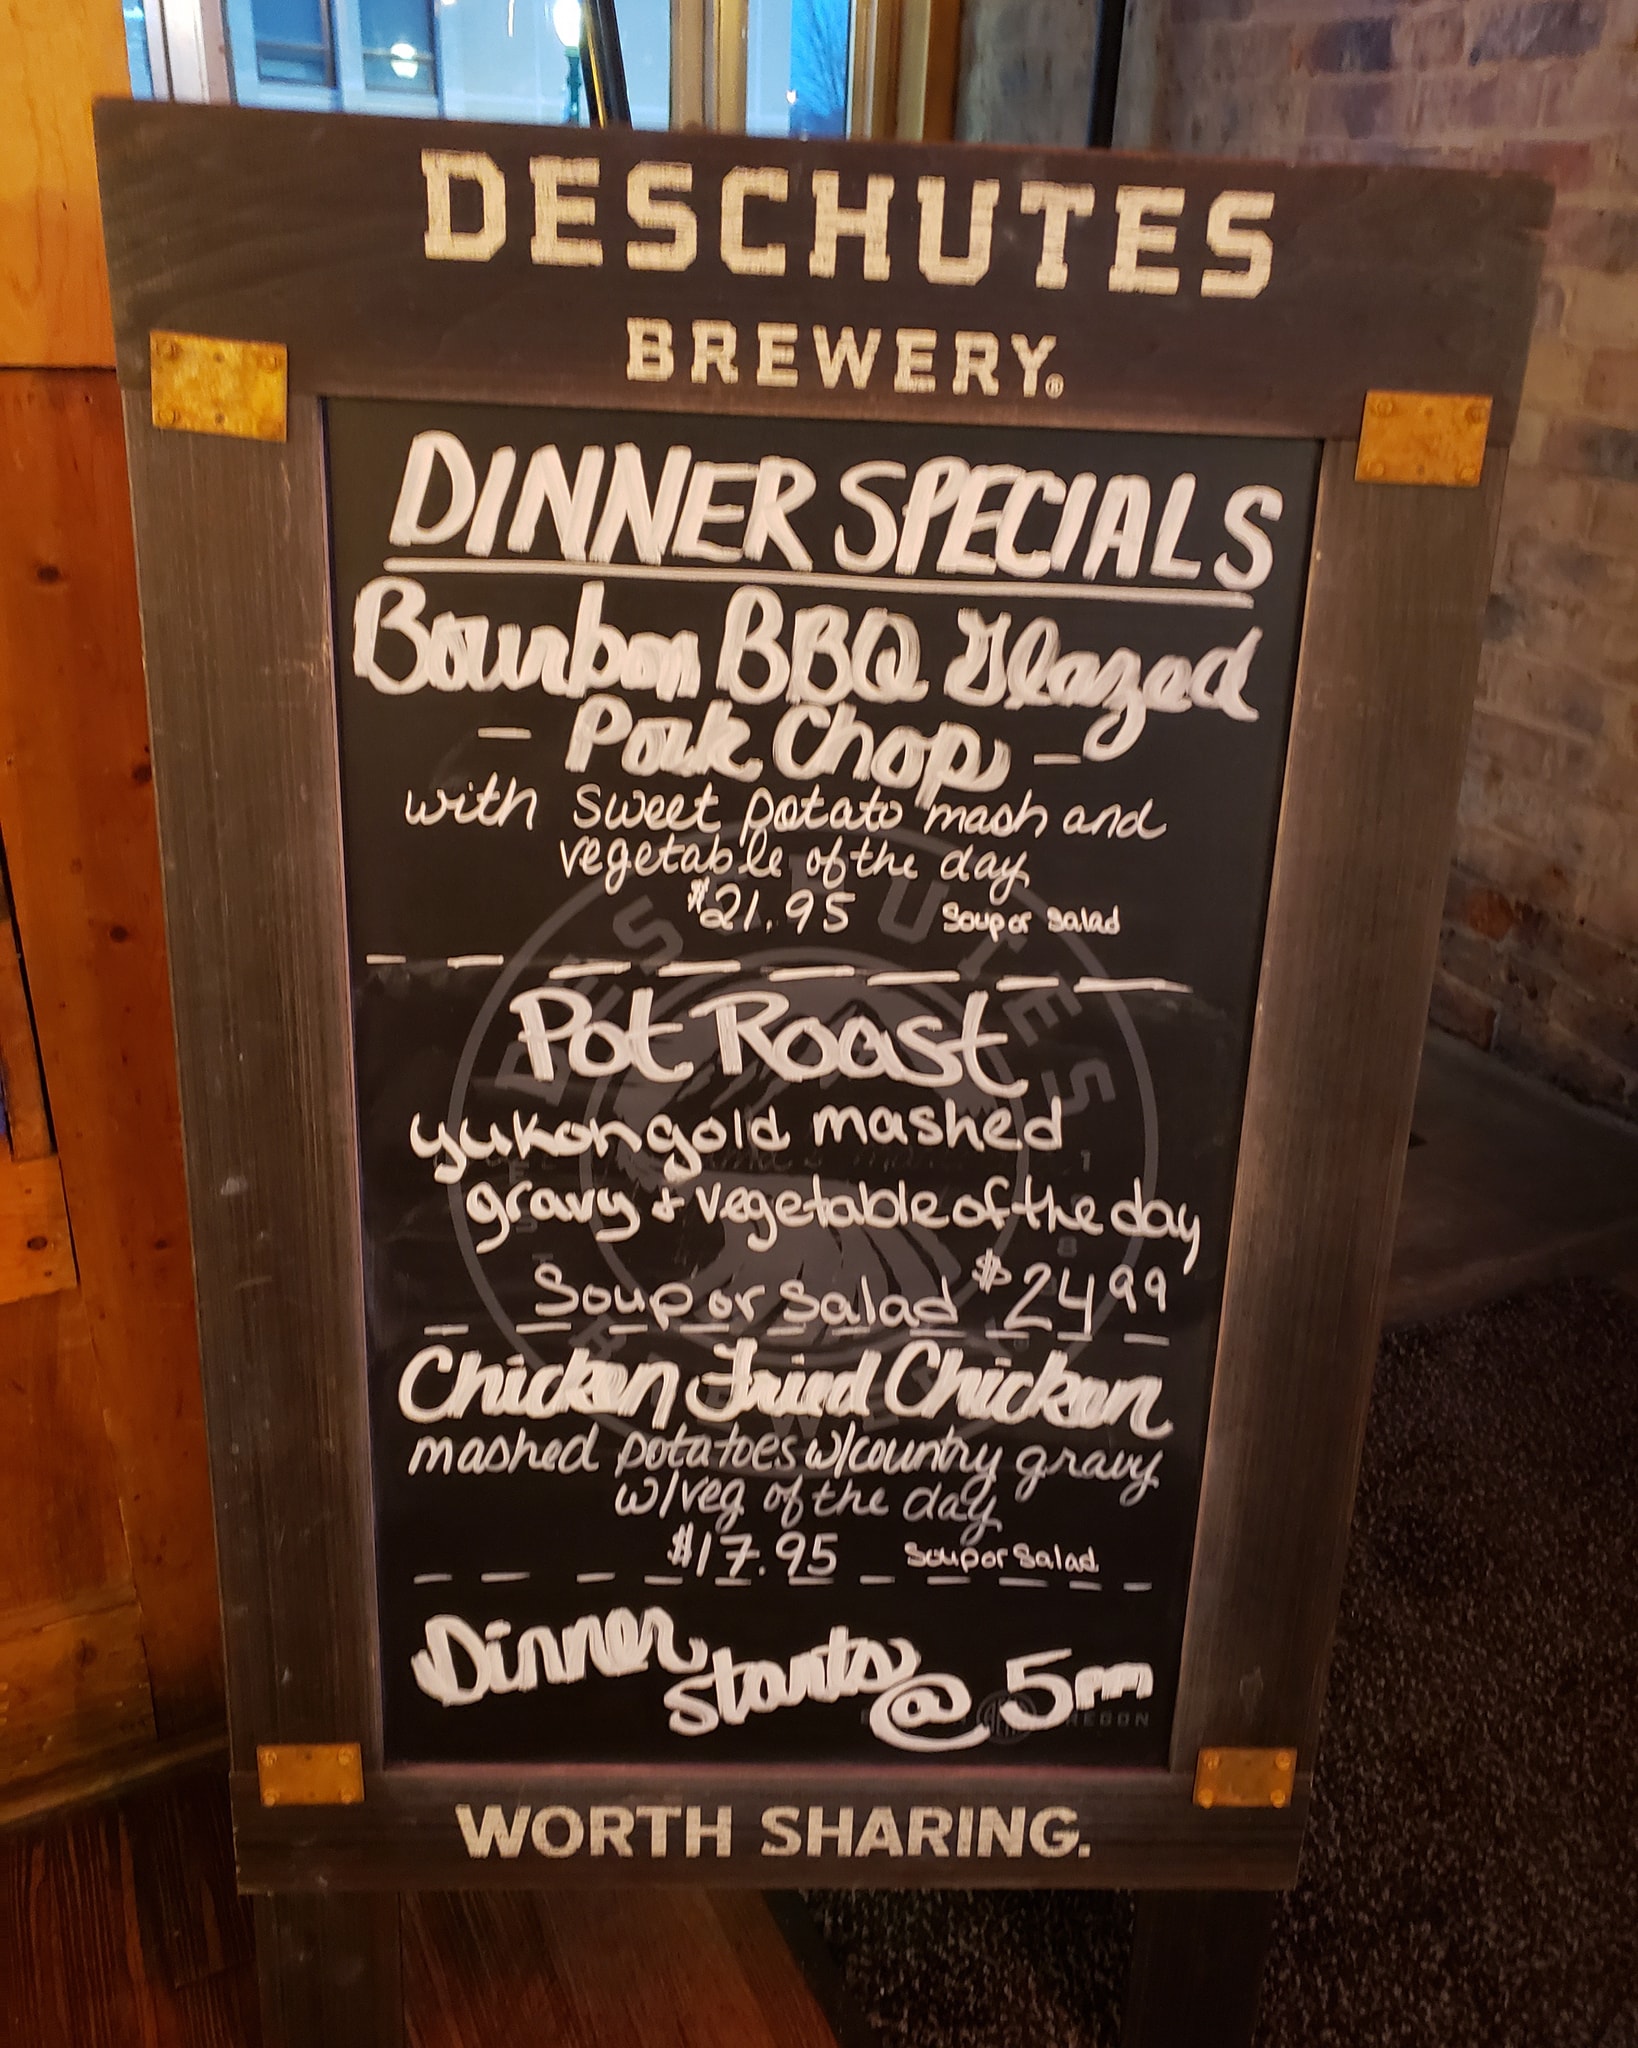 DESCHUTES
BREWERY®
DINNER SPECIALS
Bourbon BBQ Glazed
- Pork Chop -
with sweet potato mash and
vegetable of the day
$21.95 Soup or Salad
Pot Roast
yukon gold mashed
gravy + vegetable of the day
Soup or Salad $24 99
Chicken Fried Chicken
mashed potatoes w/country gravy
w/veg of the day
$17.95 Soup or Salad
Dinner
starts @ 5pm
WORTH SHARING.